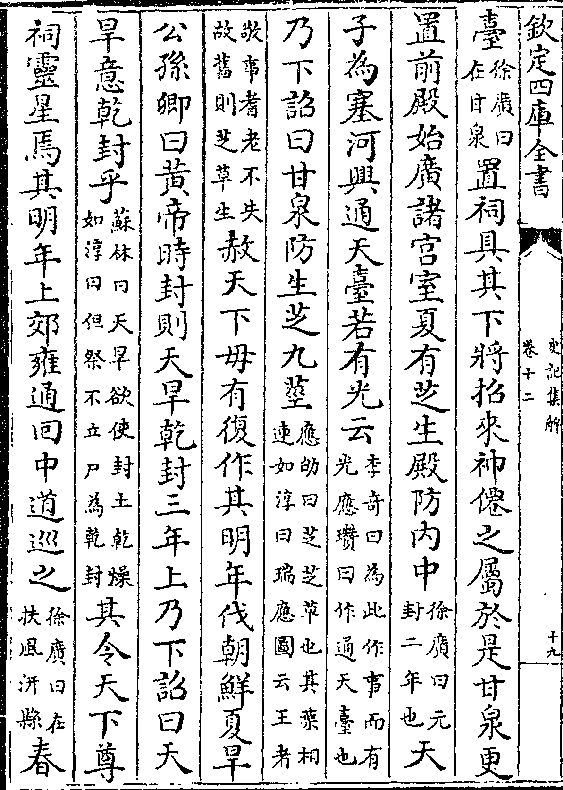 欽定四庫全書
史記集解
卷十二
十九
臺徐廣曰在甘泉置祠具其下將招來神僊之屬於是甘泉更
置前殿始廣諸宮室夏有芝生殿防内中徐廣曰元封二年也天
子為塞河興通天臺若有光云李奇曰為此作事而有光應瓚曰作通天臺也
乃下詔曰甘泉防生芝九莖應劭曰芝芝草也其葉相連如淳曰瑞應圖云王者
敬事耆老不失故舊則芝草生赦天下毋有復作其明年伐朝鮮夏旱
公孫卿曰黃帝時封則天旱乾封三年上乃下詔曰天
旱意乾封乎蘇林曰天旱欲使封土乾燥如淳曰但祭不立尸為乾封其令天下尊
祠靈星焉其明年上郊雍通回中道巡之徐廣曰在扶風汧縣春